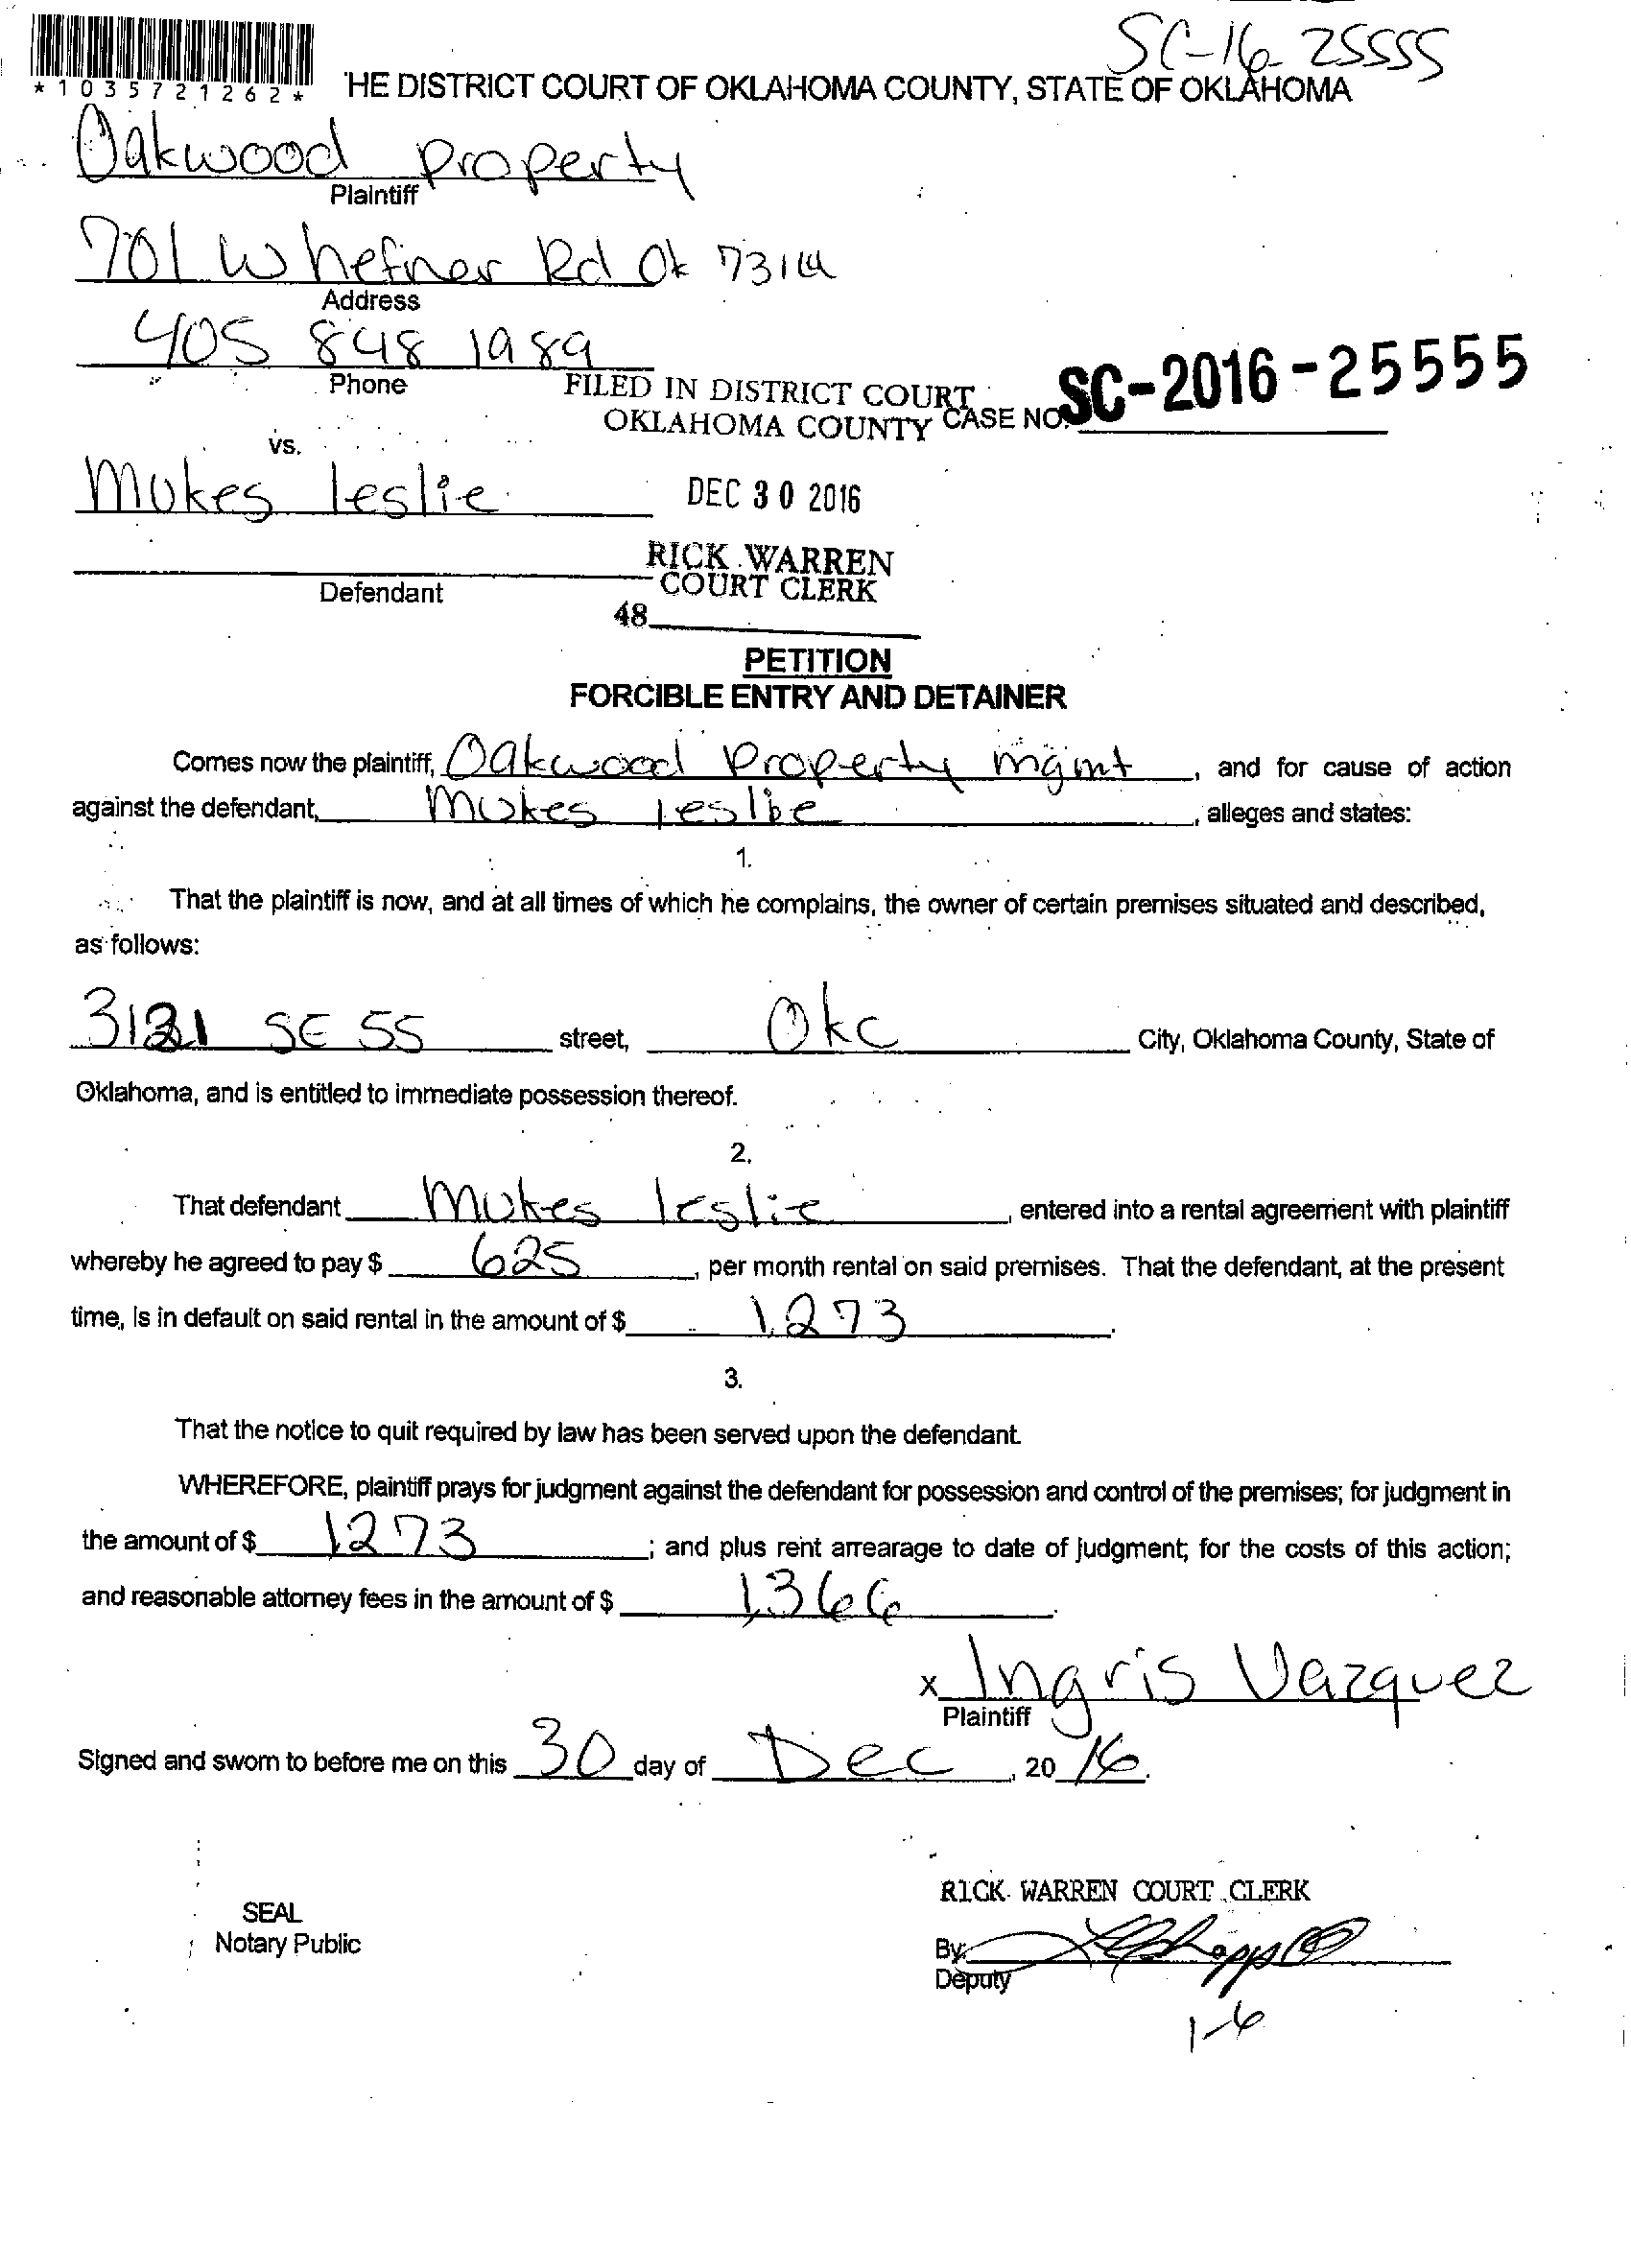 SC-16-25555
*1035721262*
HE DISTRICT COURT OF OKLAHOMA COUNTY, STATE OF OKLAHOMA
Oakwood Property
Plaintiff
701 W hefner Rd Ok 73114
Address
405 848 1989
Phone
FILED IN DISTRICT COURT
OKLAHOMA COUNTY
CASE NO. SC-2016-25555
vs.
Mukes leslie
DEC 30 2016
RICK WARREN
COURT CLERK
Defendant
48
PETITION
FORCIBLE ENTRY AND DETAINER
Comes now the plaintiff, Oakwood Property mgmt, and for cause of action
against the defendant, Mukes leslie, alleges and states:
1.
That the plaintiff is now, and at all times of which he complains, the owner of certain premises situated and described,
as follows:
3121 SE 55 street, Okc City, Oklahoma County, State of
Oklahoma, and is entitled to immediate possession thereof.
2.
That defendant Mukes leslie, entered into a rental agreement with plaintiff
whereby he agreed to pay $ 625, per month rental on said premises. That the defendant, at the present
time, is in default on said rental in the amount of $ 1,273.
3.
That the notice to quit required by law has been served upon the defendant.
WHEREFORE, plaintiff prays for judgment against the defendant for possession and control of the premises; for judgment in
the amount of $ 1273; and plus rent arrearage to date of judgment; for the costs of this action;
and reasonable attorney fees in the amount of $ 1,366.
x Ingris Vazquez
Plaintiff
Signed and sworn to before me on this 30 day of Dec, 20 16.
RICK WARREN COURT CLERK
SEAL
Notary Public
By:
Deputy
1-6